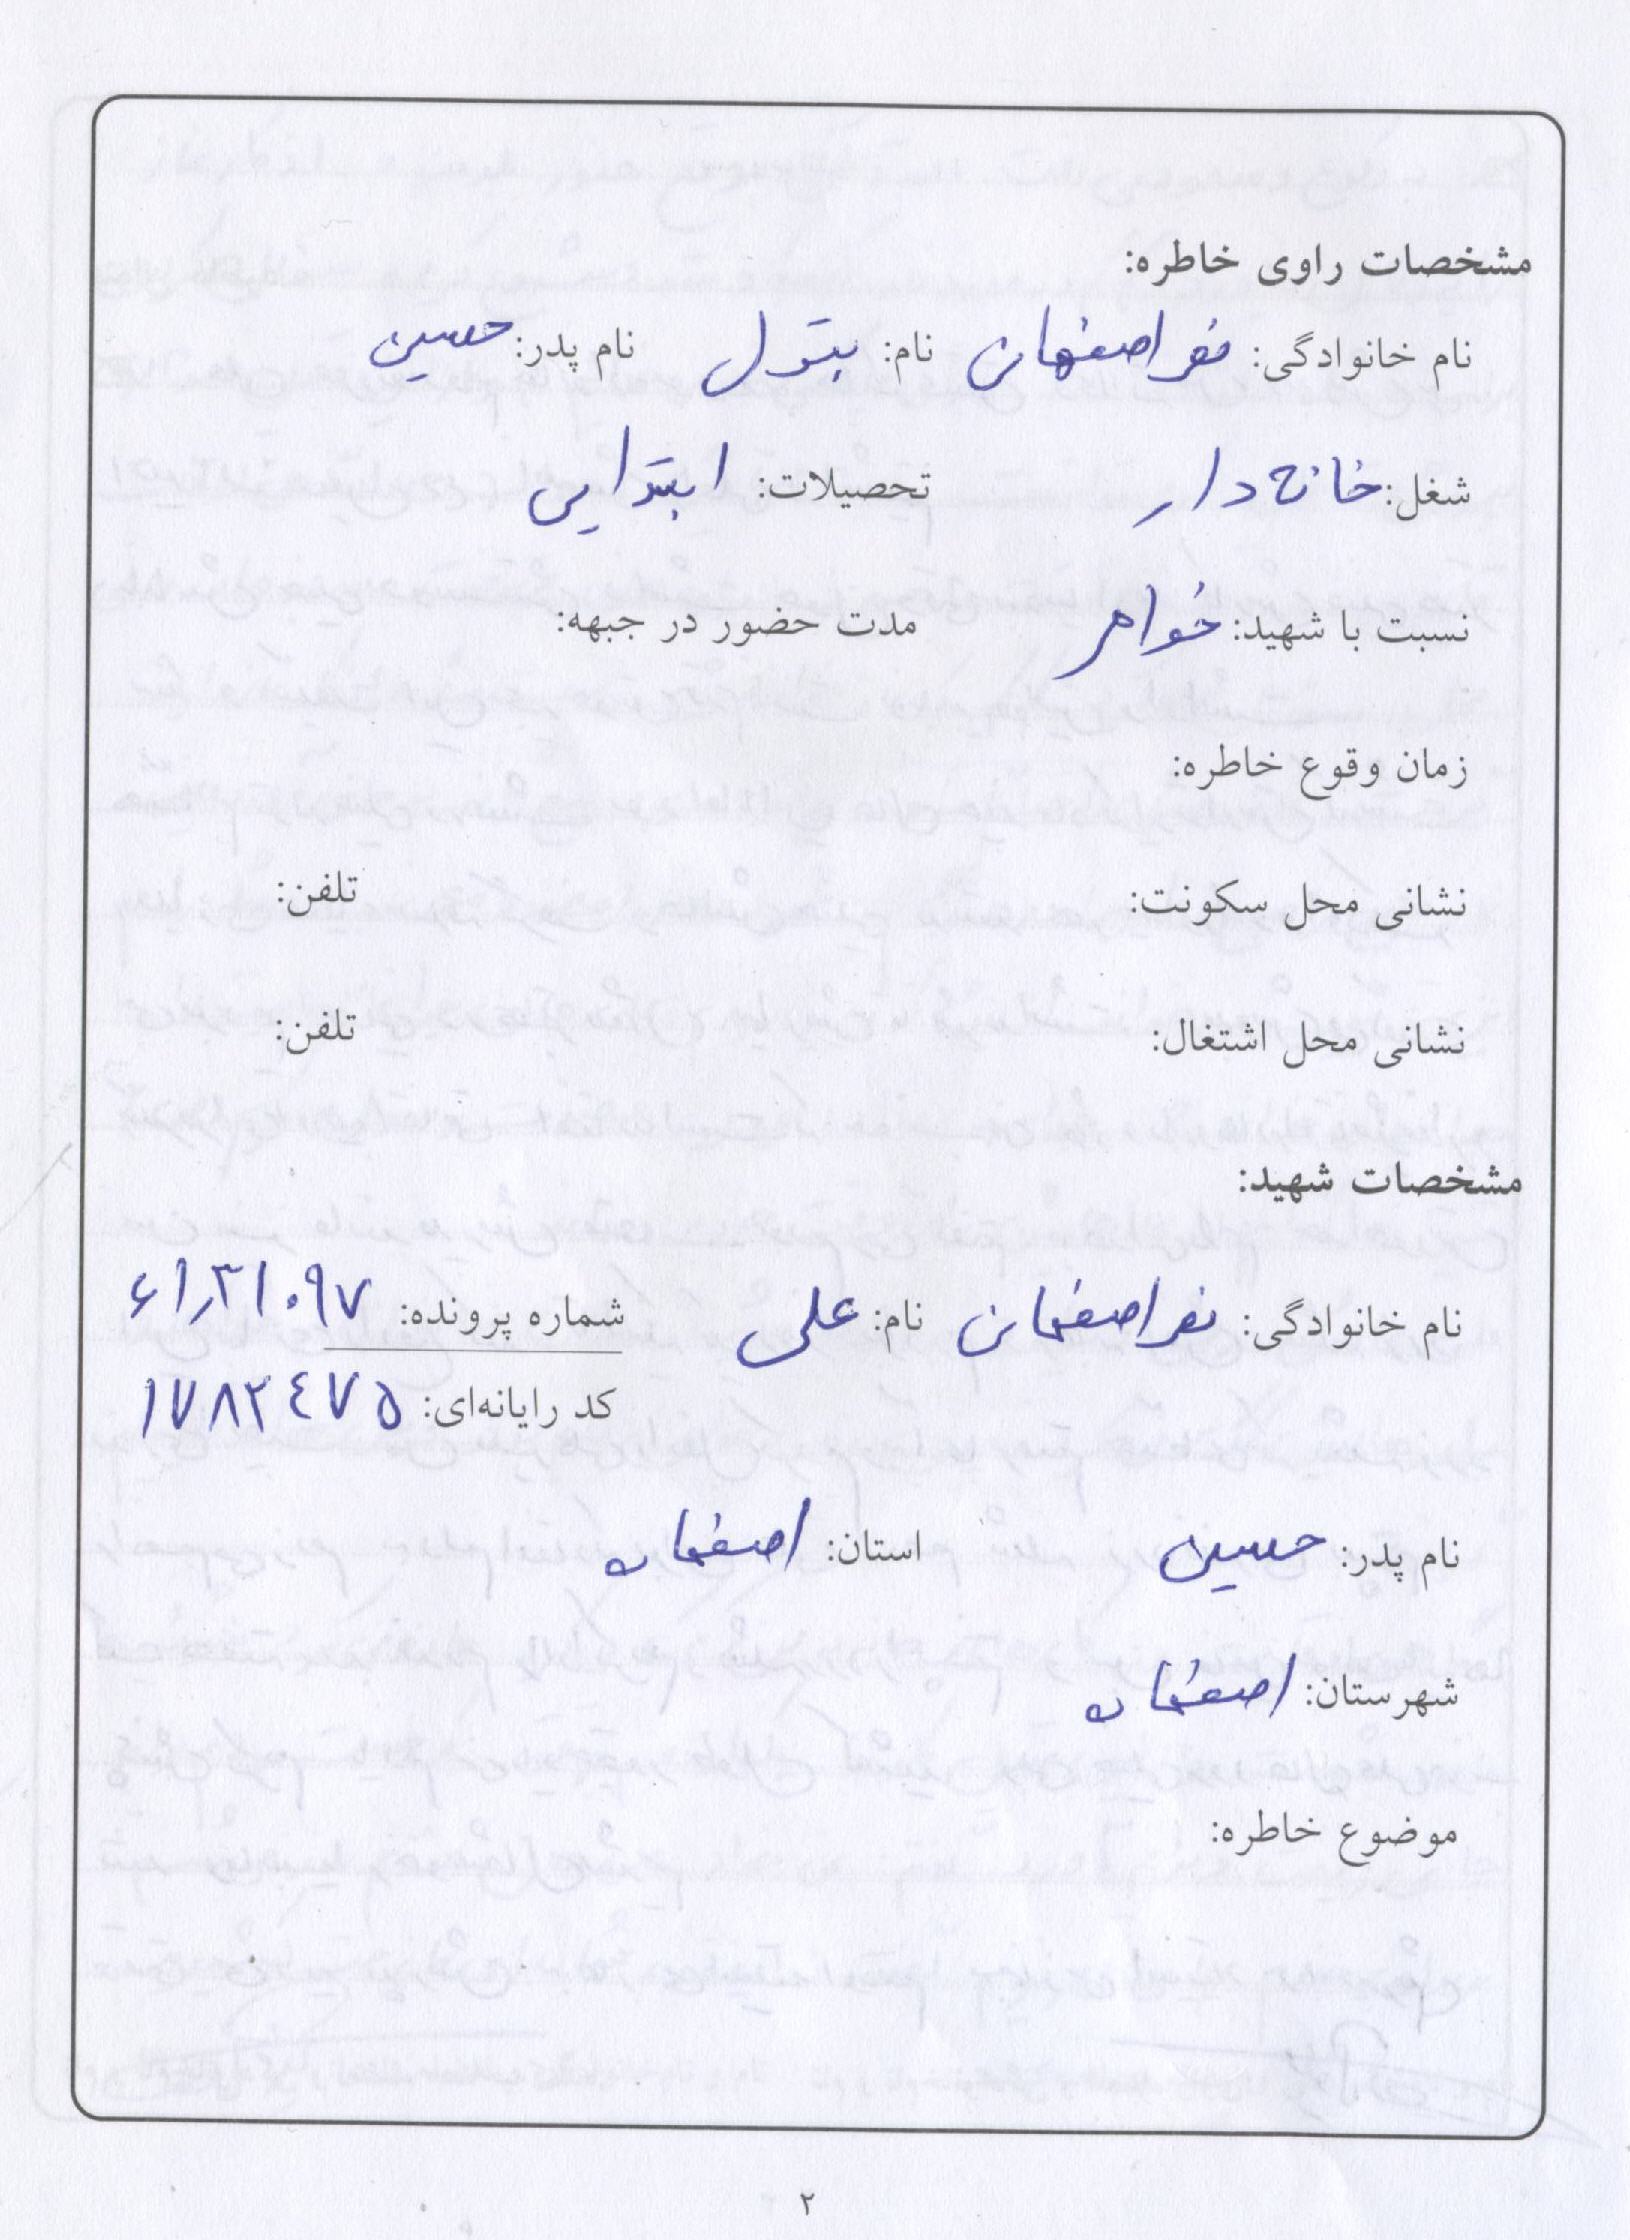 مشخصات راوی خاطره:
نام خانوادگی: نفر اصفهان نام: بتول نام پدر: حسین
شغل: خانه دار تحصیلات: ابتدایی
نسبت با شهید: خواهر مدت حضور در جبهه:
زمان وقوع خاطره:
نشانی محل سکونت: تلفن:
نشانی محل اشتغال: تلفن:
مشخصات شهید:
نام خانوادگی: نفر اصفهان نام: علی شماره پرونده: ۶۱٫۳۱۰۹۷
کد رایانه‌ای: ۱۷۸۲۴۷۵
نام پدر: حسین استان: اصفهان
شهرستان: اصفهان
موضوع خاطره:
۲